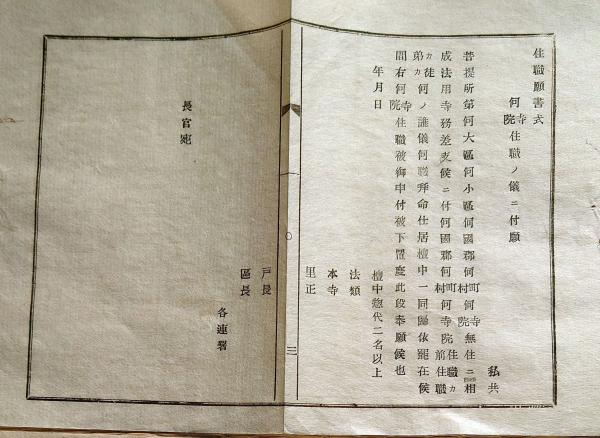 住職願書式
何寺院住職ノ儀ニ付願
私共
菩提所第何大區何小區何國郡何町村何寺院無住ニ相
成法用寺務差支候ニ付何國郡何町村何寺院住職カ前住職
カ徒弟カ何ノ誰儀何職拜命仕居檀中一同歸依罷在候
間右何寺院住職被御申付被下置度此段奉願候也
年月日
檀中惣代二名以上
法類
本寺
里正
〇
三
戸長
區長
各連署
長官宛